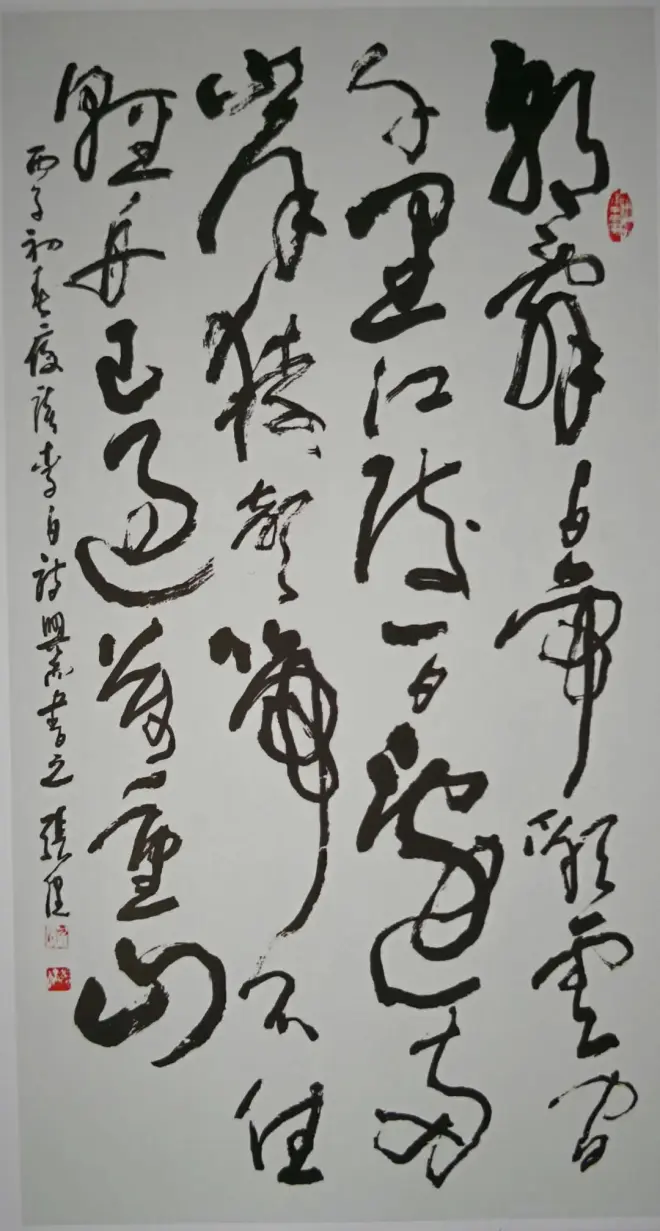 朝辭白帝彩雲間
千里江陵一日還兩
岸猿聲啼不住
輕舟已過萬重山
丙子初春夜讀李白詩興來書之 張